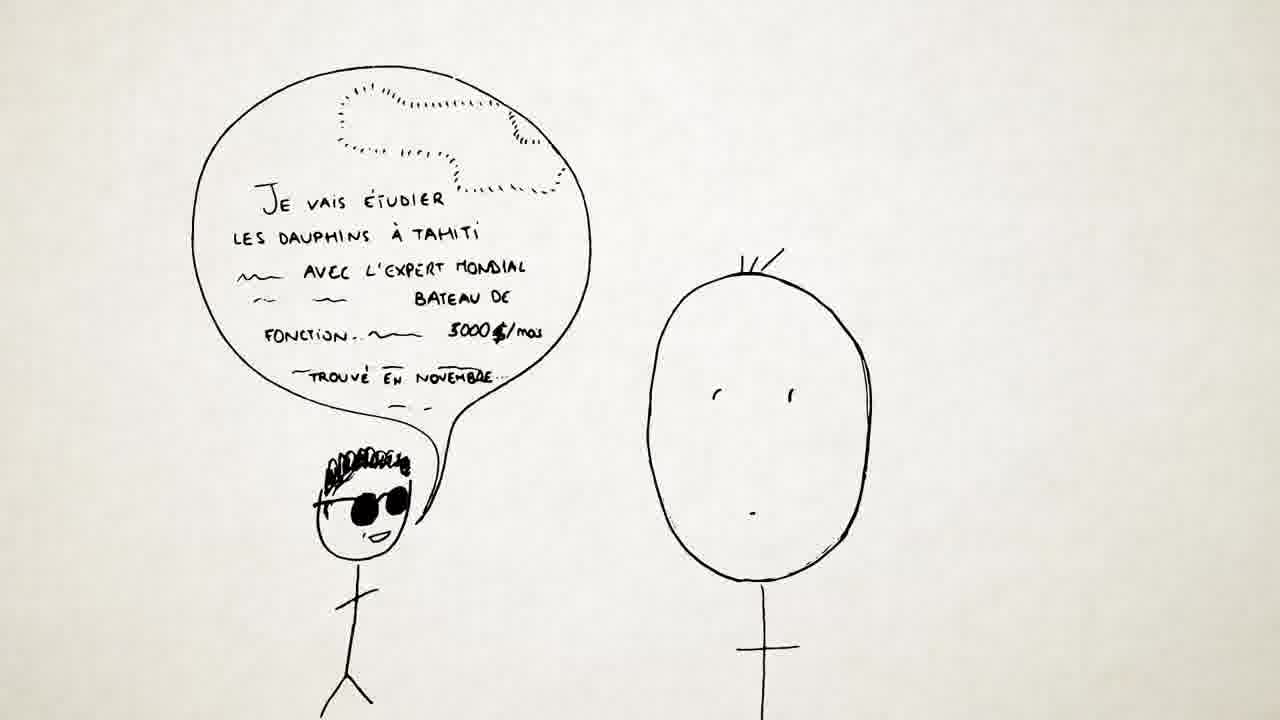 JE VAIS ÉTUDIER
LES DAUPHINS À TAHITI
AVEC L'EXPERT MONDIAL
BATEAU DE
FONCTION.. 5000$/mois
TROUVÉ EN NOVEMBRE...